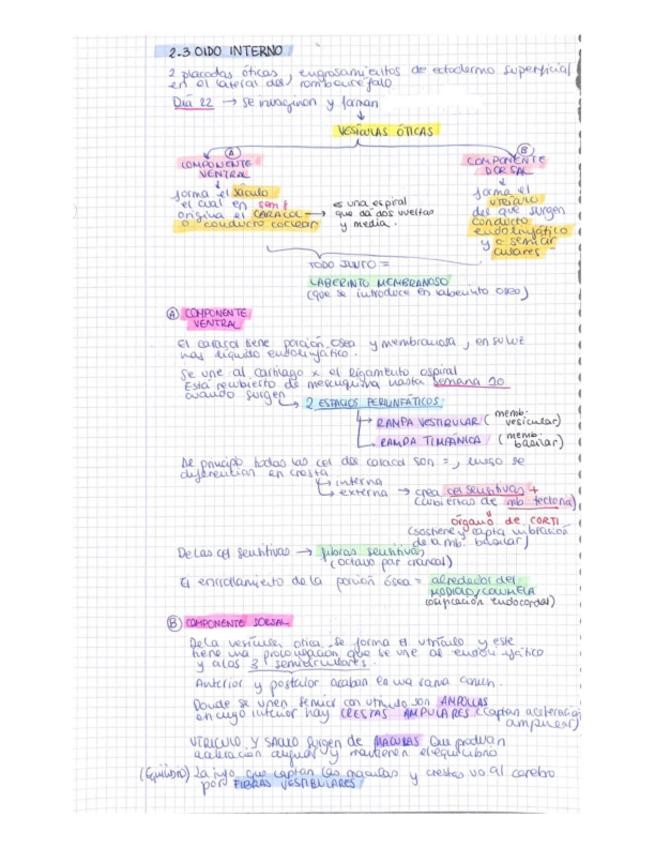 2.3 OIDO INTERNO
2 placodas óticas, engrosamientos de ectodermo superficial
en el lateral del rombencéfalo
Día 22 → se invaginan y forman
VESÍCULAS ÓTICAS
A
COMPONENTE
VENTRAL
forma el sáculo
el cual en sem 8
origina el CARACOL
o conducto coclear
es una espiral
que da dos vueltas
y media.
B
COMPONENTE
DORSAL
forma el
utrículo
del que surgen
conducto
endolinfático
y c semicir
culares
TODO JUNTO =
LABERINTO MEMBRANOSO
(que se introduce en laberinto óseo)
A COMPONENTE
VENTRAL
El caracol tiene porción ósea y membranosa, en su luz
hay líquido endolinfático.
Se une al cartílago x el ligamento espiral
Está recubierto de mesénquima hasta semana 10
cuando surgen → 2 ESPACIOS PERILINFÁTICOS
RAMPA VESTIBULAR (memb. vesicular)
RAMPA TIMPÁNICA (memb. basilar)
De principio todas las cel del caracol son =, luego se
diferencian en cresta
interna
externa → crea cel sensitivas +
(cubiertas de mb tectoria)
órgano de CORTI
(sostiene y capta vibración
de la mb. basilar)
De las cel sensitivas → fibras sensitivas
(octavo par craneal)
El enrollamiento de la porción ósea = alrededor del
MODIOLO/COLUMELA
(osificación endocondral)
B COMPONENTE DORSAL
De la vesícula ótica se forma el utrículo y este
tiene una prolongación que se une al endolinfático
y a los 3 semicirculares.
Anterior y posterior acaban en una rama común.
Donde se unen semicir con utrículo son AMPOLLAS
en cuyo interior hay CRESTAS AMPULARES (captan aceleración
angular)
UTRÍCULO Y SÁCULO surgen de MÁCULAS que producen
aceleración angular y mantienen el equilibrio
(Equilibrio) La info que captan las máculas y crestas va al cerebro
por FIBRAS VESTIBULARES